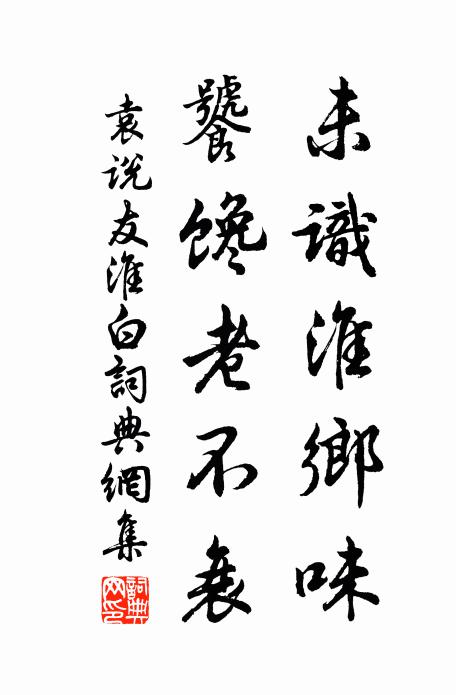 未識淮鄉味
饕馋老不衰
袁说友淮白詞典網集
詞典网印